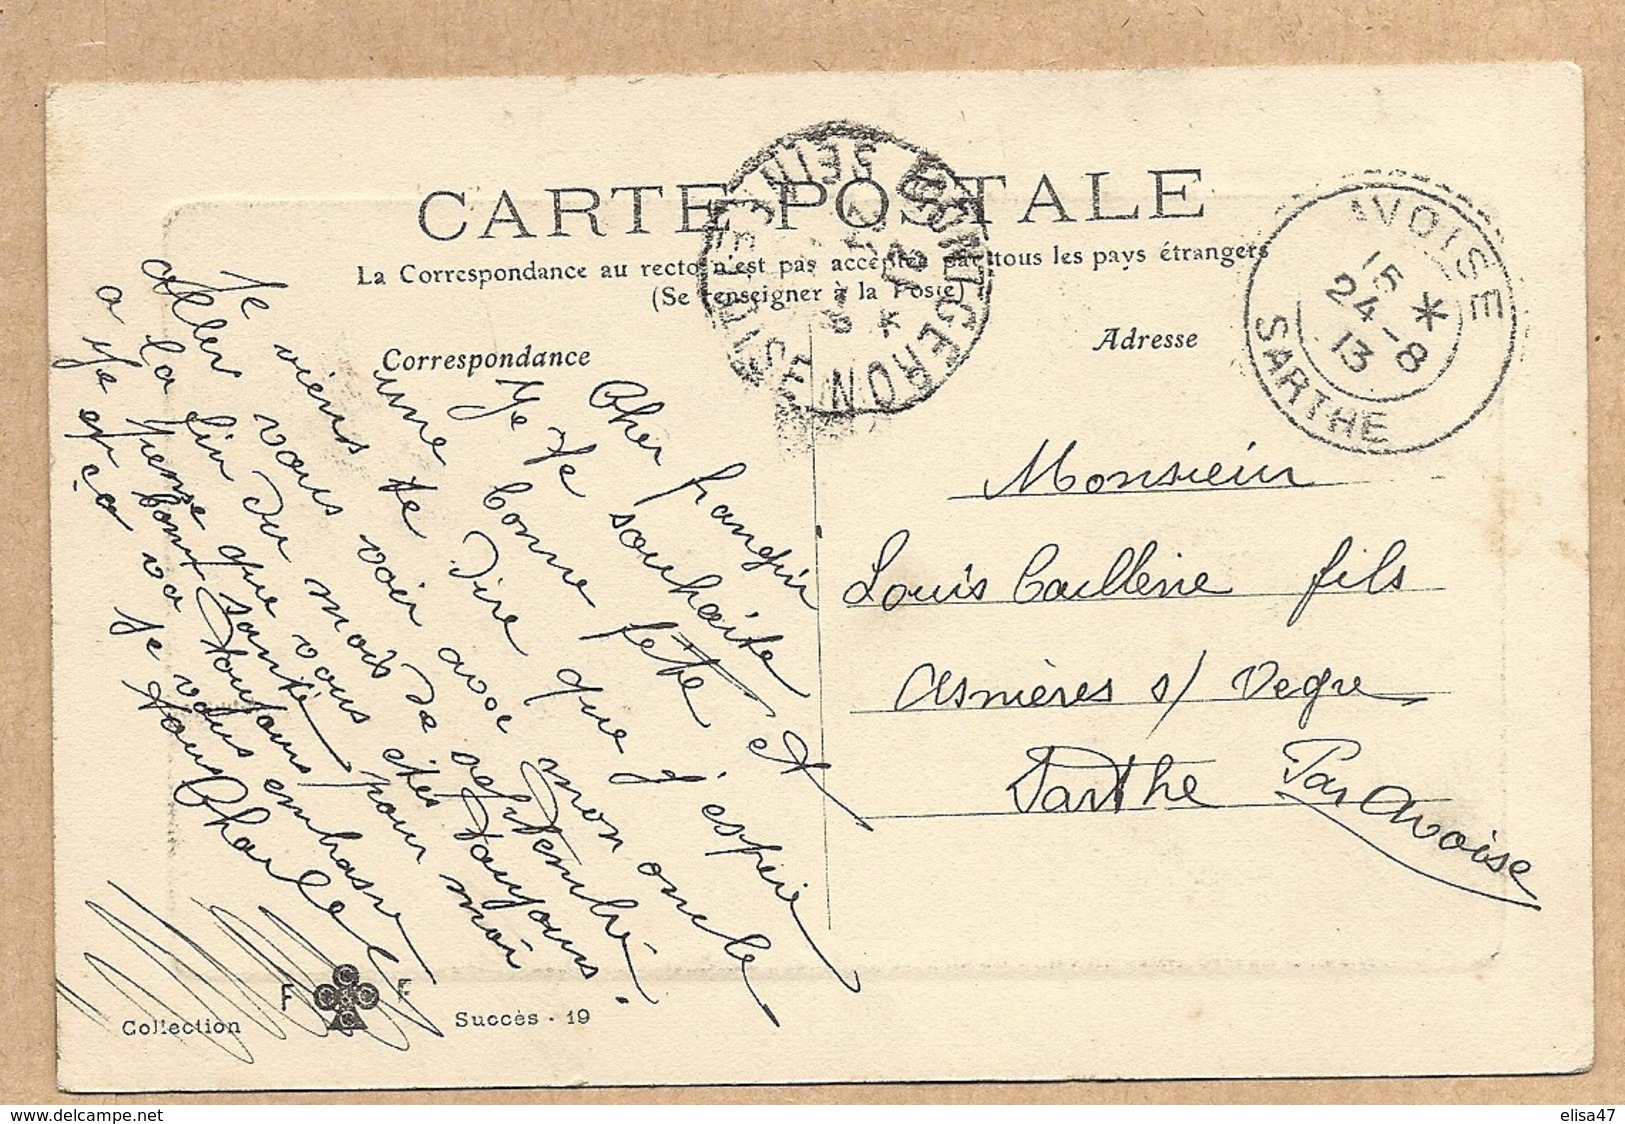 CARTE POSTALE
La Correspondance au recto n'est pas acceptée par tous les pays étrangers
(Se renseigner à la Poste)
Correspondance
Adresse
MONTGERON
SEINE ET OISE
AVOISE
15 *
24-8
13
SARTHE
Cher frangin
Je te souhaite
une bonne fête et
Je viens te dire que j'espère
aller vous voir avec mon oncle
a la fin du mois de septembre.
Je pense que vous êtes toujours
en bonne santé pour moi
ça va toujours
Je vous embrasse
tous
Charles
Monsieur
Louis Caillerie fils
Asnières s/ Vegre
Sarthe Par Avoise
Collection
Succès - 19
elisa47